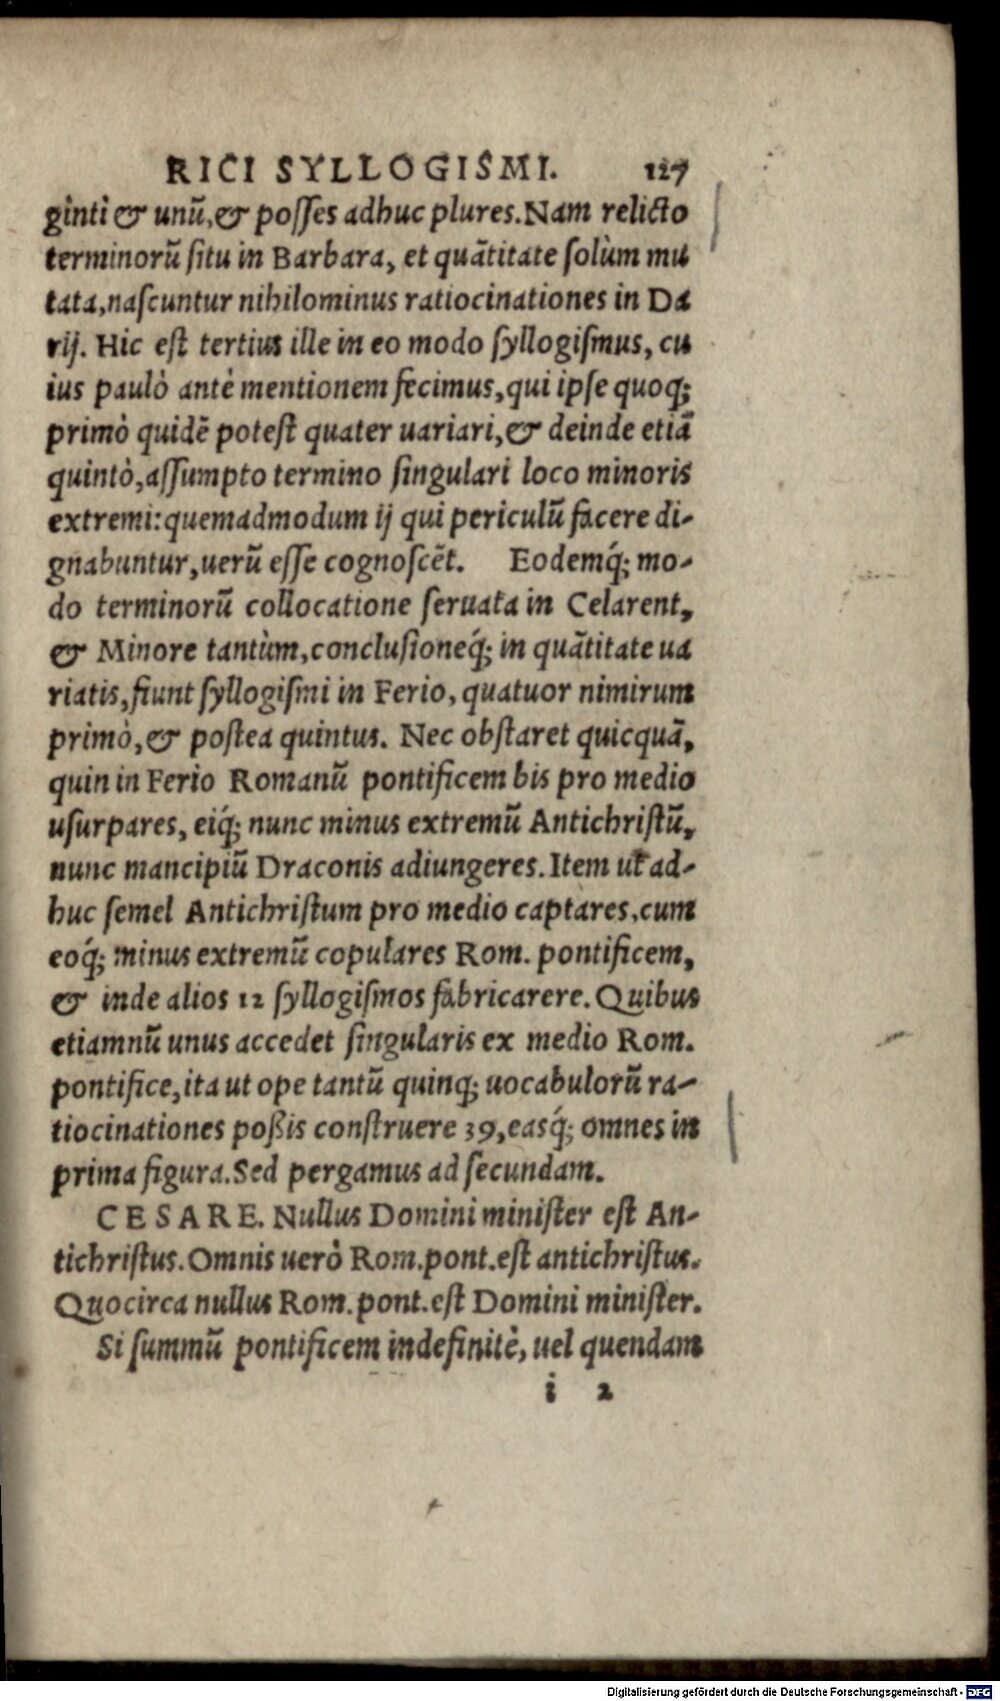 RICI SYLLOGISMI. 127
ginti & unũ, & posses adhuc plures. Nam relicto
terminorũ situ in Barbara, et quãtitate solùm mu
tata, nascuntur nihilominus ratiocinationes in Da
rij. Hic est tertius ille in eo modo syllogismus, cu
ius paulò antè mentionem fecimus, qui ipse quoq;
primò quidẽ potest quater uariari, & deinde etiã
quintò, assumpto termino singulari loco minoris
extremi: quemadmodum ij qui periculũ facere di-
gnabuntur, uerũ esse cognoscẽt. Eodemq́; mo-
do terminorũ collocatione seruata in Celarent,
& Minore tantùm, conclusioneq́; in quãtitate ua
riatis, fiunt syllogismi in Ferio, quatuor nimirum
primò, & postea quintus. Nec obstaret quicquã,
quin in Ferio Romanũ pontificem bis pro medio
usurpares, eiq́; nunc minus extremũ Antichristũ,
nunc mancipiũ Draconis adiungeres. Item ut ad-
huc semel Antichristum pro medio captares, cum
eoq́; minus extremũ copulares Rom. pontificem,
& inde alios 12 syllogismos fabricarere. Quibus
etiamnũ unus accedet singularis ex medio Rom.
pontifice, ita ut ope tantũ quinq; uocabulorũ ra-
tiocinationes poßis construere 39, easq́; omnes in
prima figura. Sed pergamus ad secundam.
CESARE. Nullus Domini minister est An-
tichristus. Omnis uerò Rom. pont. est antichristus.
Quocirca nullus Rom. pont. est Domini minister.
Si summũ pontificem indefinitè, uel quendam
i 2
Digitalisierung gefördert durch die Deutsche Forschungsgemeinschaft - DFG